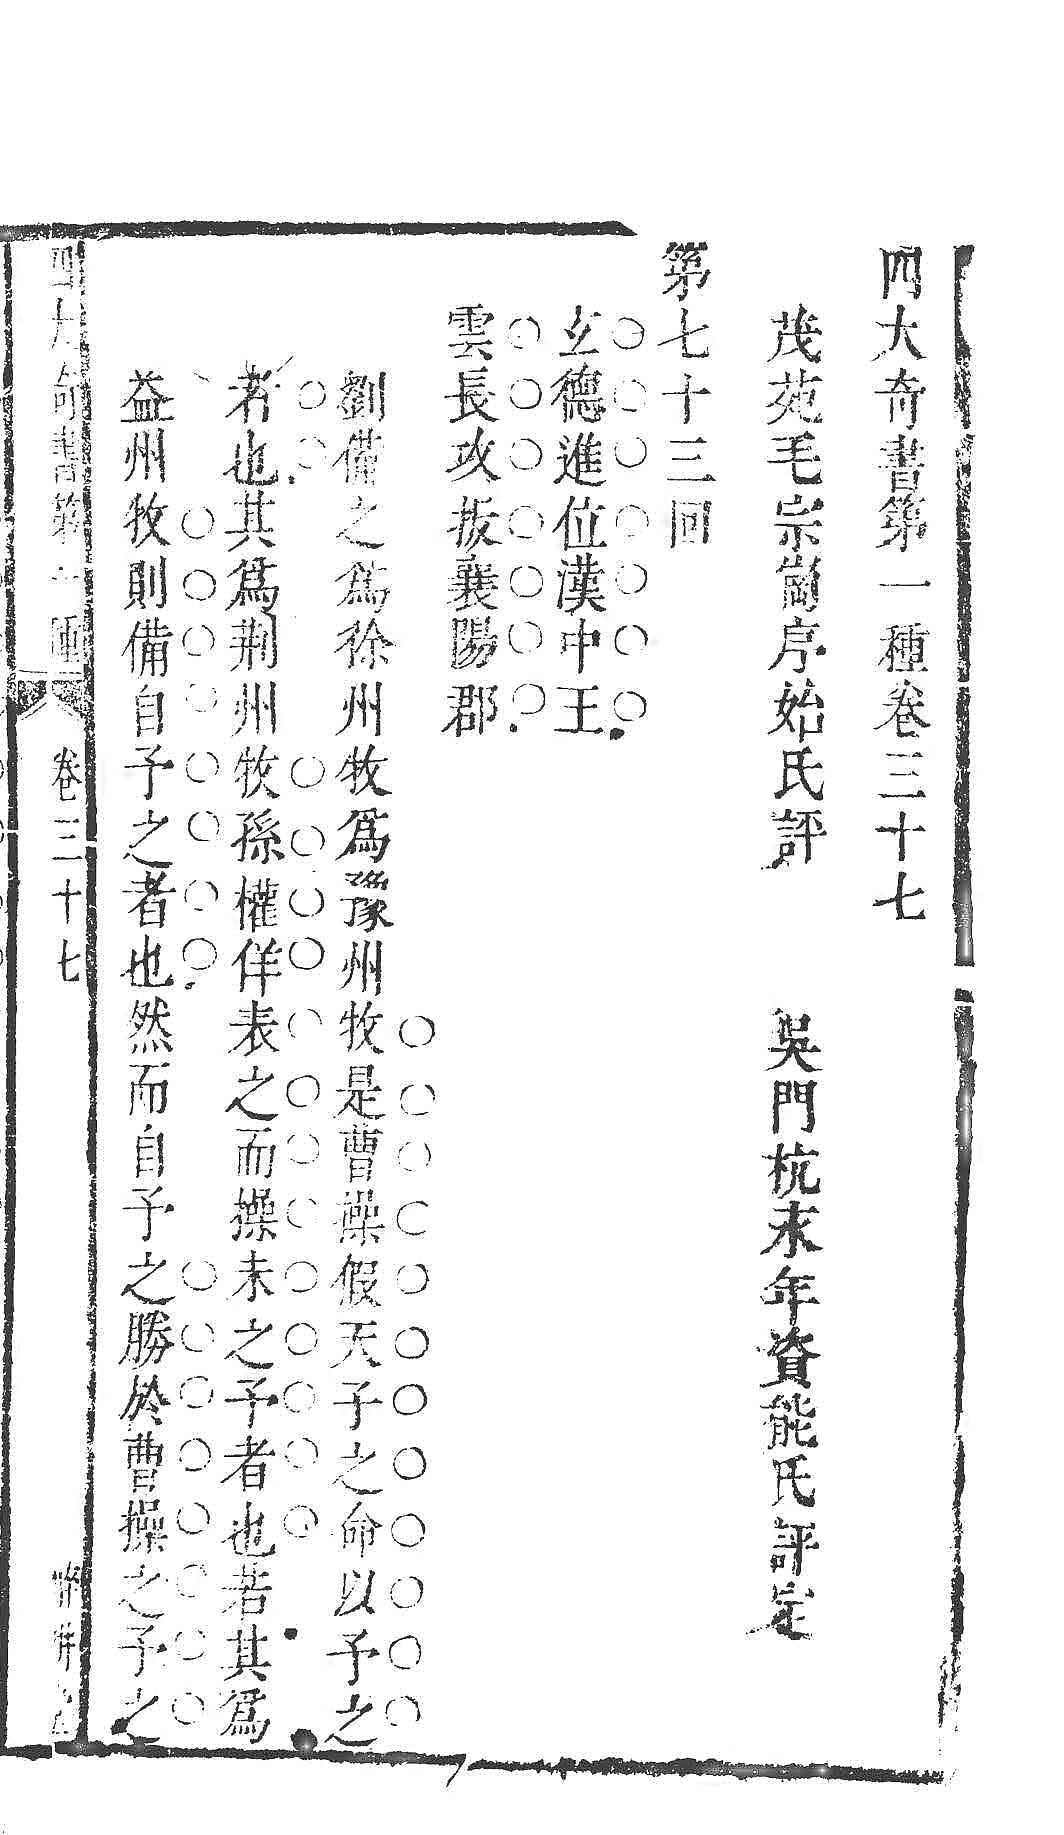 四大奇書第一種卷三十七
茂苑毛宗崗序始氏評　吳門杭永年資能氏評定
第七十三回
玄德進位漢中王
雲長攻拔襄陽郡
劉備之爲徐州牧爲豫州牧是曹操假天子之命以予之
者也其爲荆州牧孫權佯表之而操未之予者也若其爲
益州牧則備自予之者也然而自予之勝於曹操之予之
四大奇書第一種　卷三十七